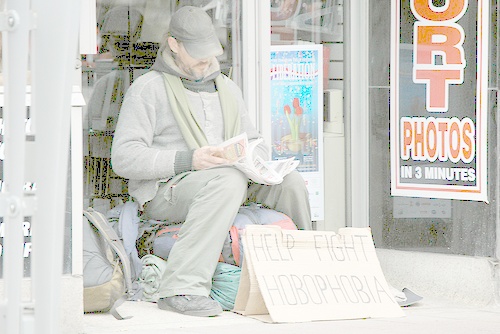 ORT
PHOTOS
IN 3 MINUTES
HELP FIGHT
HOBOPHOBIA